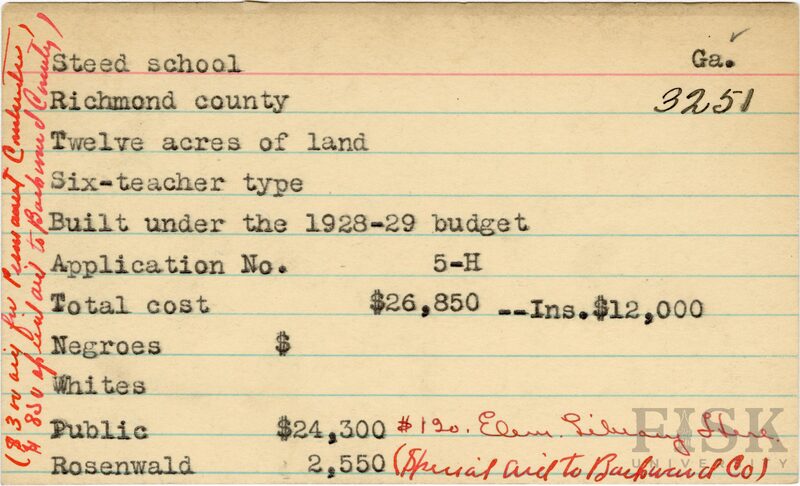 Steed school Ga.
Richmond county 3251
Twelve acres of land
Six-teacher type
Built under the 1928-29 budget
Application No. 5-H
Total cost $26,850 --Ins.$12,000
Negroes $
Whites
Public $24,300 $120. Elem. Library
Rosenwald 2,550 (Special aid to Backward Co)
($300 aid for Permanent Construction,
$850 special aid to Backward County)
FISK
UNIVERSITY